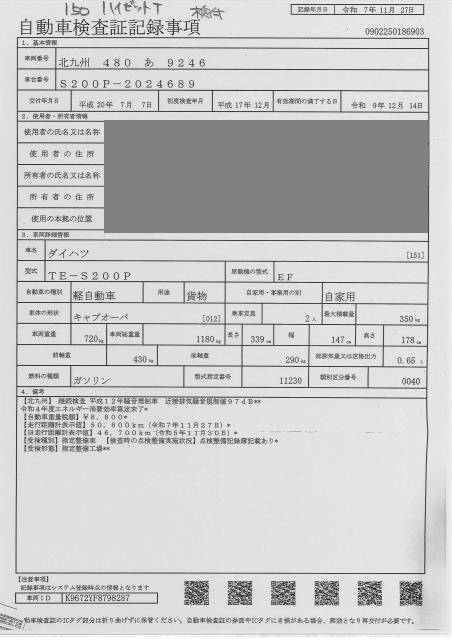 150 ハイゼットT 検付
記録年月日 令和 7年11月 27日
自動車検査証記録事項
0902250186903
1. 基本情報
車両番号 北九州 480 あ 9246
車台番号 S200P-2024689
交付年月日 平成20年 7月 7日 初度検査年月 平成17年12月 有効期間の満了する日 令和 9年12月 14日
2. 使用者・所有者情報
使用者の氏名又は名称
使用者の住所
所有者の氏名又は名称
所有者の住所
使用の本拠の位置
3. 車両詳細情報
車名 ダイハツ [151]
型式 TE-S200P 原動機の型式 EF
自動車の種別 軽自動車 用途 貨物 自家用・事業用の別 自家用
車体の形状 キャブオーバ [012] 乗車定員 2人 最大積載量 350kg
車両重量 720kg 車両総重量 1180kg 長さ 339cm 幅 147cm 高さ 178cm
前軸重 430kg 後軸重 290kg 総排気量又は定格出力 0.65L
燃料の種類 ガソリン 型式指定番号 11230 類別区分番号 0040
4. 備考
【北九州】 継続検査 平成12年騒音規制車 近接排気騒音規制値97dB**
令和4年度エネルギー消費効率算定未了*
【自動車重量税額】¥8,800*
【走行距離計表示値】50,600km(令和7年11月27日)*
【旧走行距離計表示値】46,700km(令和5年11月30日)*
【受検種別】指定整備車 【検査時の点検整備実施状況】点検整備記録簿記載あり*
【受検形態】指定整備工場**
【注意事項】
記録事項はシステム登録時点の情報となります
車両ID K9672YF8798287
動車検査証のICタグ部分は折り曲げずに保管ください。自動車検査証の券面やICタグにき損がある場合、無効となり再交付が必要です。